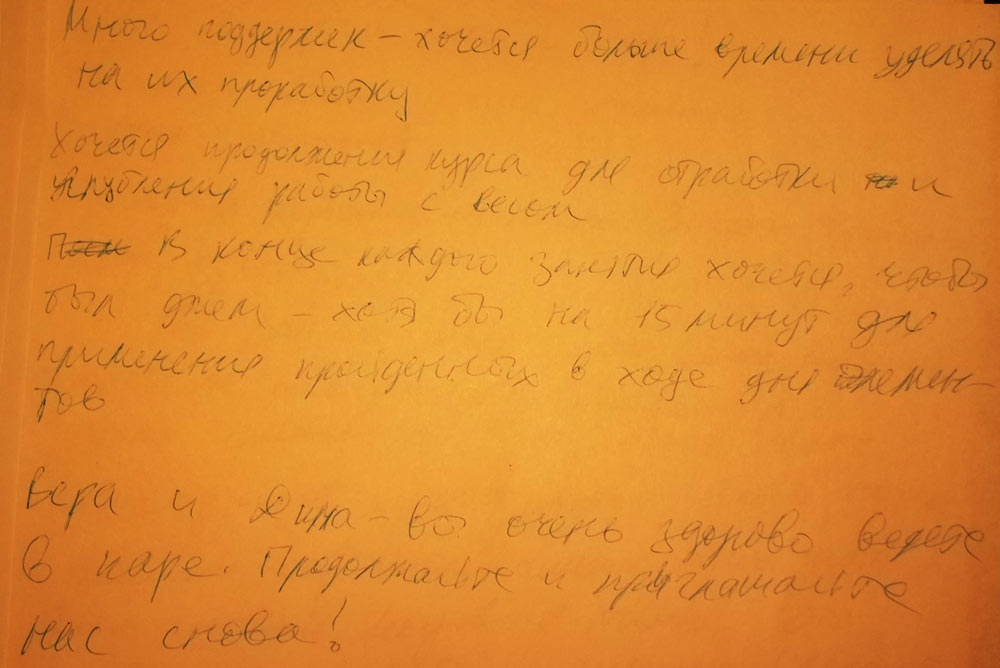 Много поддержек – хочется больше времени уделять
на их проработку
Хочется продолжения курса для отработки и
углубления работы с весом
В конце каждого занятия хочется, чтобы
был джем – хотя бы на 15 минут для
применения пройденных в ходе дня элемен-
тов
Вера и Дина – вы очень здорово ведете
в паре. Продолжайте и приглашайте
нас снова!